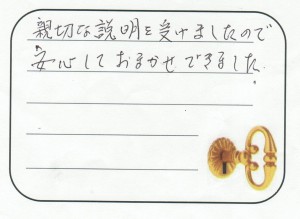 親切な説明を受けましたので
安心しておまかせできました.